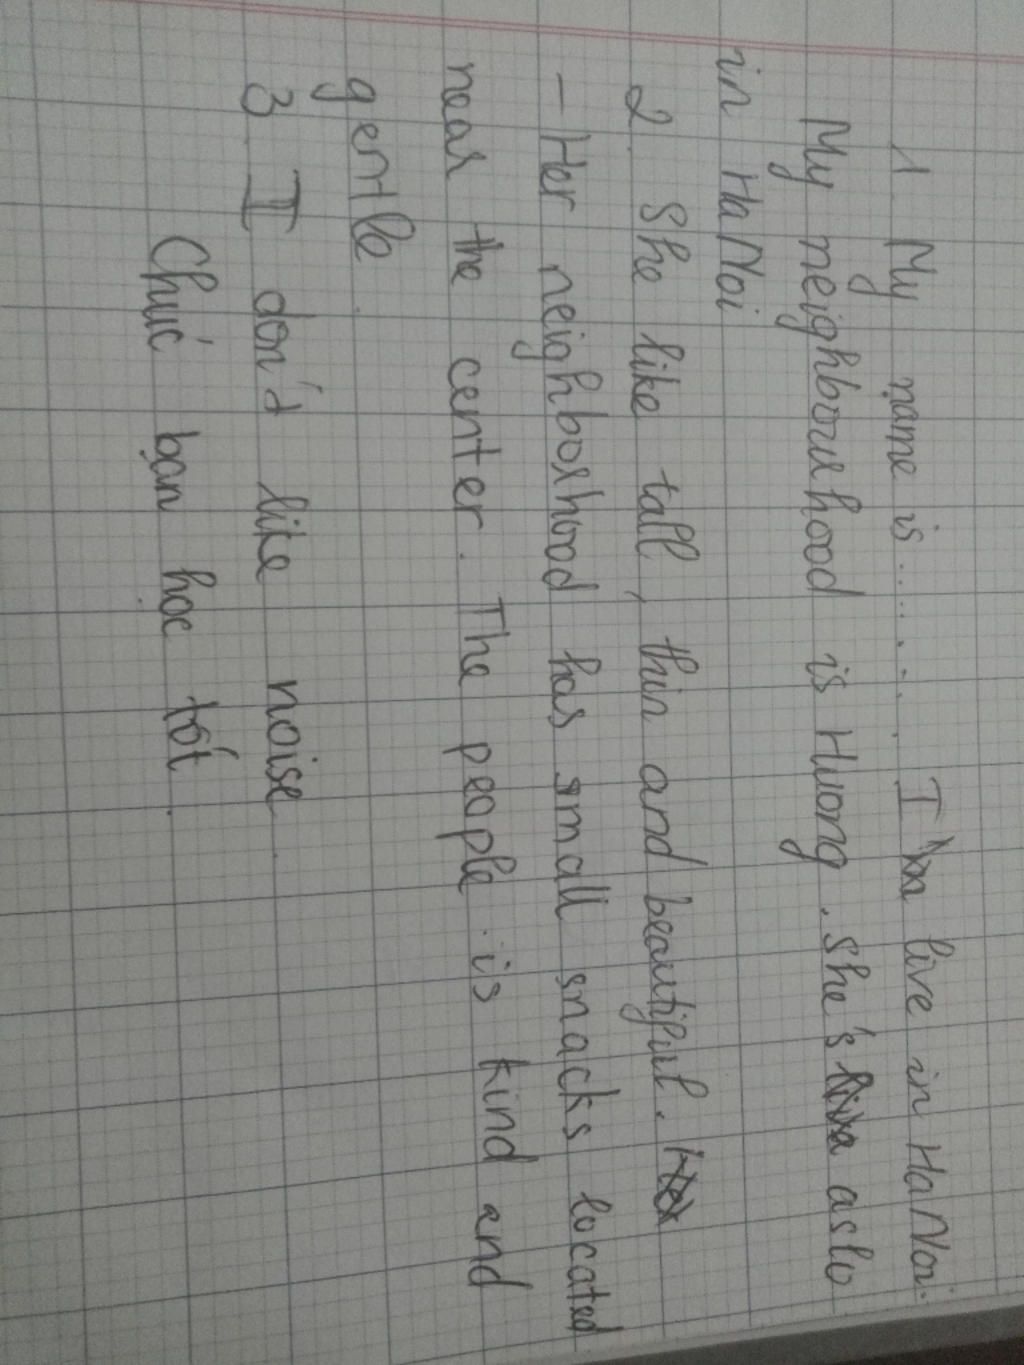 1 My name is ......... I'm live in HaNoi.
My neighbourhood is Huong. she's aslo
in HaNoi
2 She like tall, thin and beautiful.
- Her neighborhood has small snacks located
near the center. The people is kind and
gentle
3 I don't like noise
Chúc bạn học tốt.